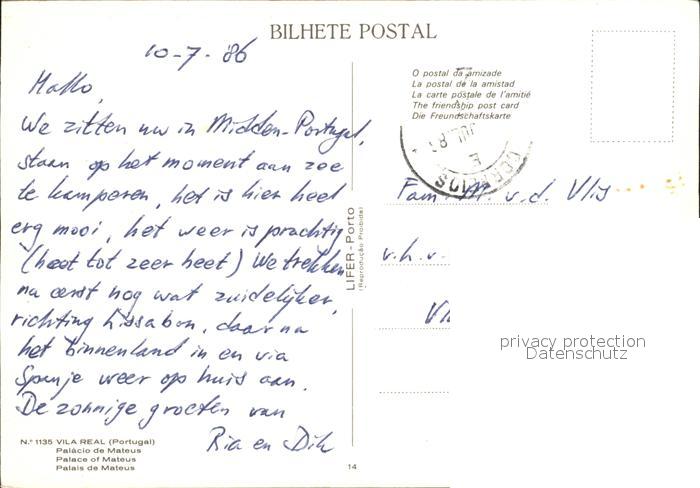 BILHETE POSTAL
10-7-'86
Hallo,
We zitten nu in Midden-Portugal,
staan op het moment aan zee
te kamperen, het is hier heel
erg mooi, het weer is prachtig
(heet tot zeer heet) We trekken
na eerst nog wat zuidelijker,
richting Lissabon, daarna
het binnenland in en via
Spanje weer op huis aan.
De zonnige groeten van
Ria en Dik
N.º 1135 VILA REAL (Portugal)
Palácio de Mateus
Palace of Mateus
Palais de Mateus
LIFER - Porto
(Reprodução Proibida)
14
O postal da amizade
La postal de la amistad
La carte postale de l'amitié
The friendship post card
Die Freundschaftskarte
CORREIOS
JUL.
E
Fam. M. v.d. Vlis
v.h.v.
privacy protection
Datenschutz